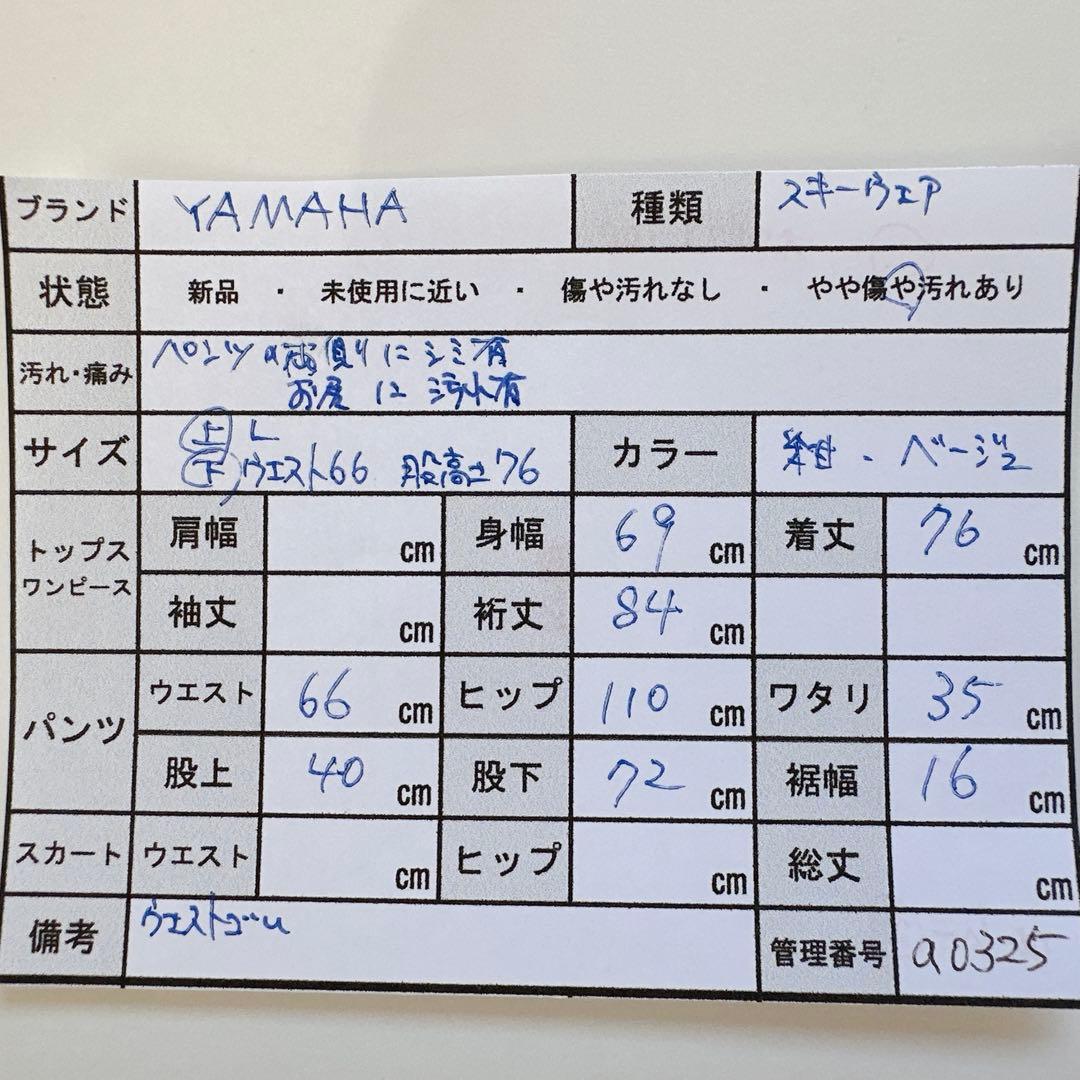 ブランド YAMAHA 種類 スキーウェア
状態 新品 ・ 未使用に近い ・ 傷や汚れなし ・ やや傷や汚れあり
汚れ・痛み パンツの 側にシミ有
お尻に汚れ有
サイズ 上 L カラー 紺 . ベージュ
下 ウエスト66 股高さ76
トップス ワンピース 肩幅 cm 身幅 69 cm 着丈 76 cm
袖丈 cm 裄丈 84 cm
パンツ ウエスト 66 cm ヒップ 110 cm ワタリ 35 cm
股上 40 cm 股下 72 cm 裾幅 16 cm
スカート ウエスト cm ヒップ cm 総丈 cm
備考 ウエストゴム 管理番号 a0325